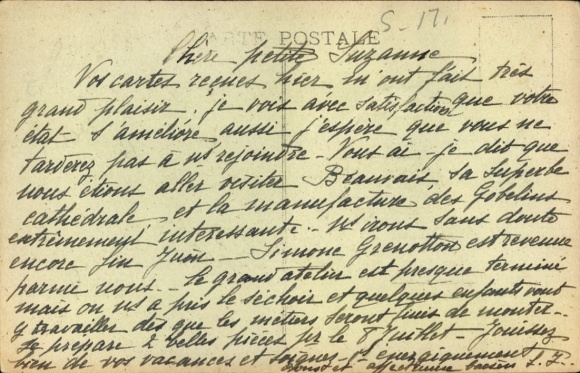 S-17.
CARTE POSTALE
Chère petite Suzanne
Vos cartes reçues hier m'ont fait très
grand plaisir. je vois avec satisfaction que votre
état s'améliore aussi j'espère que vous ne
tarderez pas à ns rejoindre - Vous ai-je dit que
nous étions aller visiter Beauvais, sa superbe
cathédrale et la manufacture des Gobelins
extrêmement intéressante - ns irons sans doute
encore fin Juin - Simone Grenotton est revenue
parmi nous - le grand atelier est presque terminé
mais on ns a pris le séchoir et quelques enfants vont
y travailler dès que les métiers seront finis de monter -
Je prépare 2 belles pièces pr le 8 Juillet - Jouissez
bien de vos vacances et soignez-vs énergiquement
et affectueux baisers S. P.